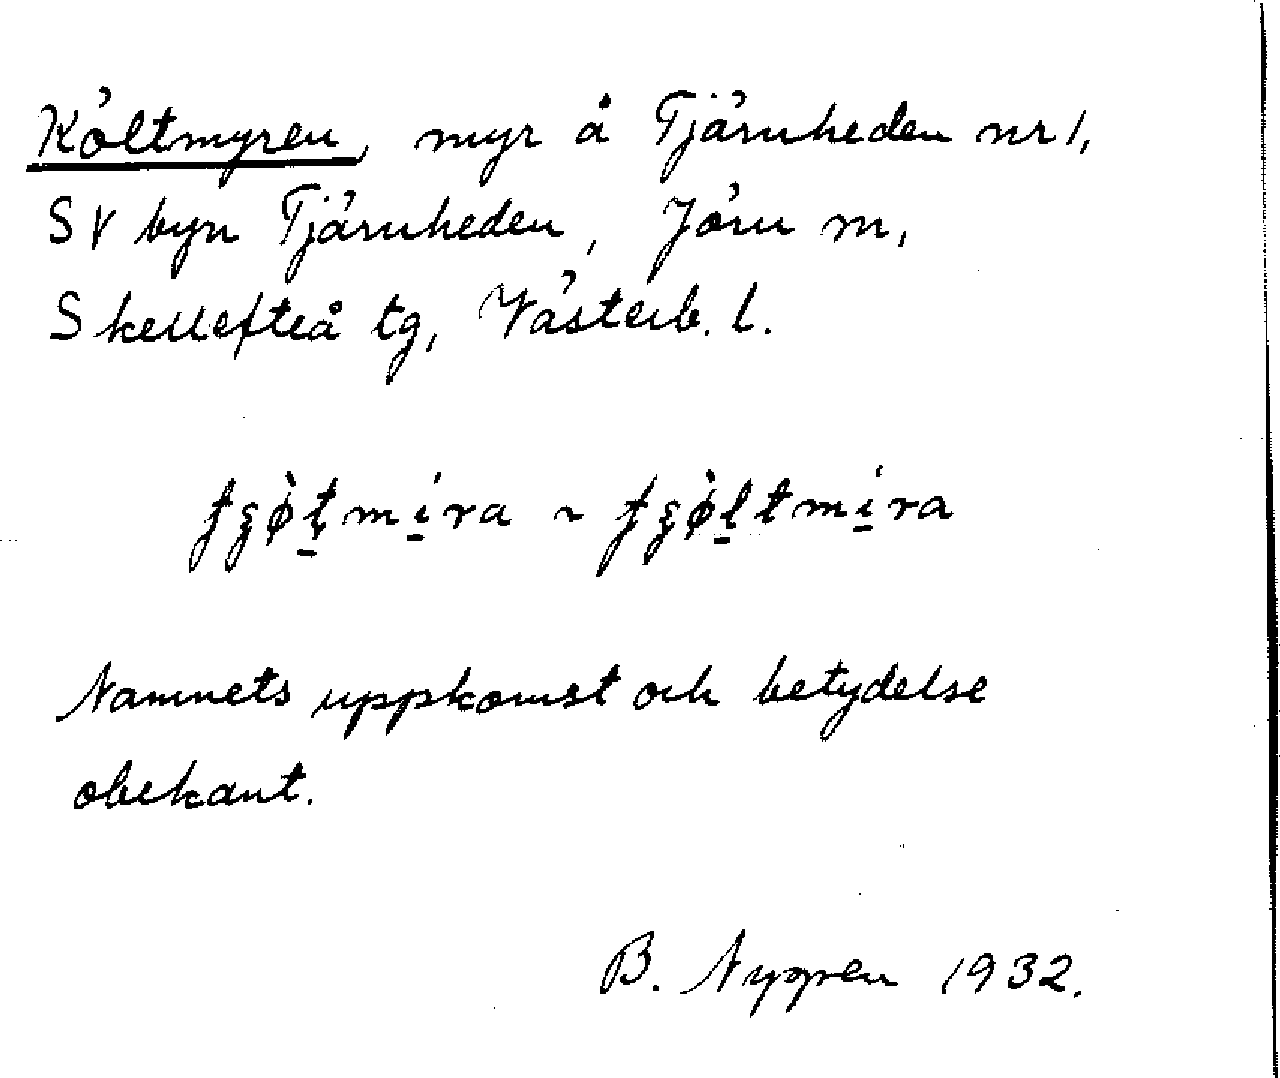 Költmyren, myr å Tjärnheden nr 1,
SV byn Tjärnheden, Jörn sn,
Skellefteå tg, Västerb. l.
Namnets uppkomst och betydelse
obekant.
B. Nygren 1932.